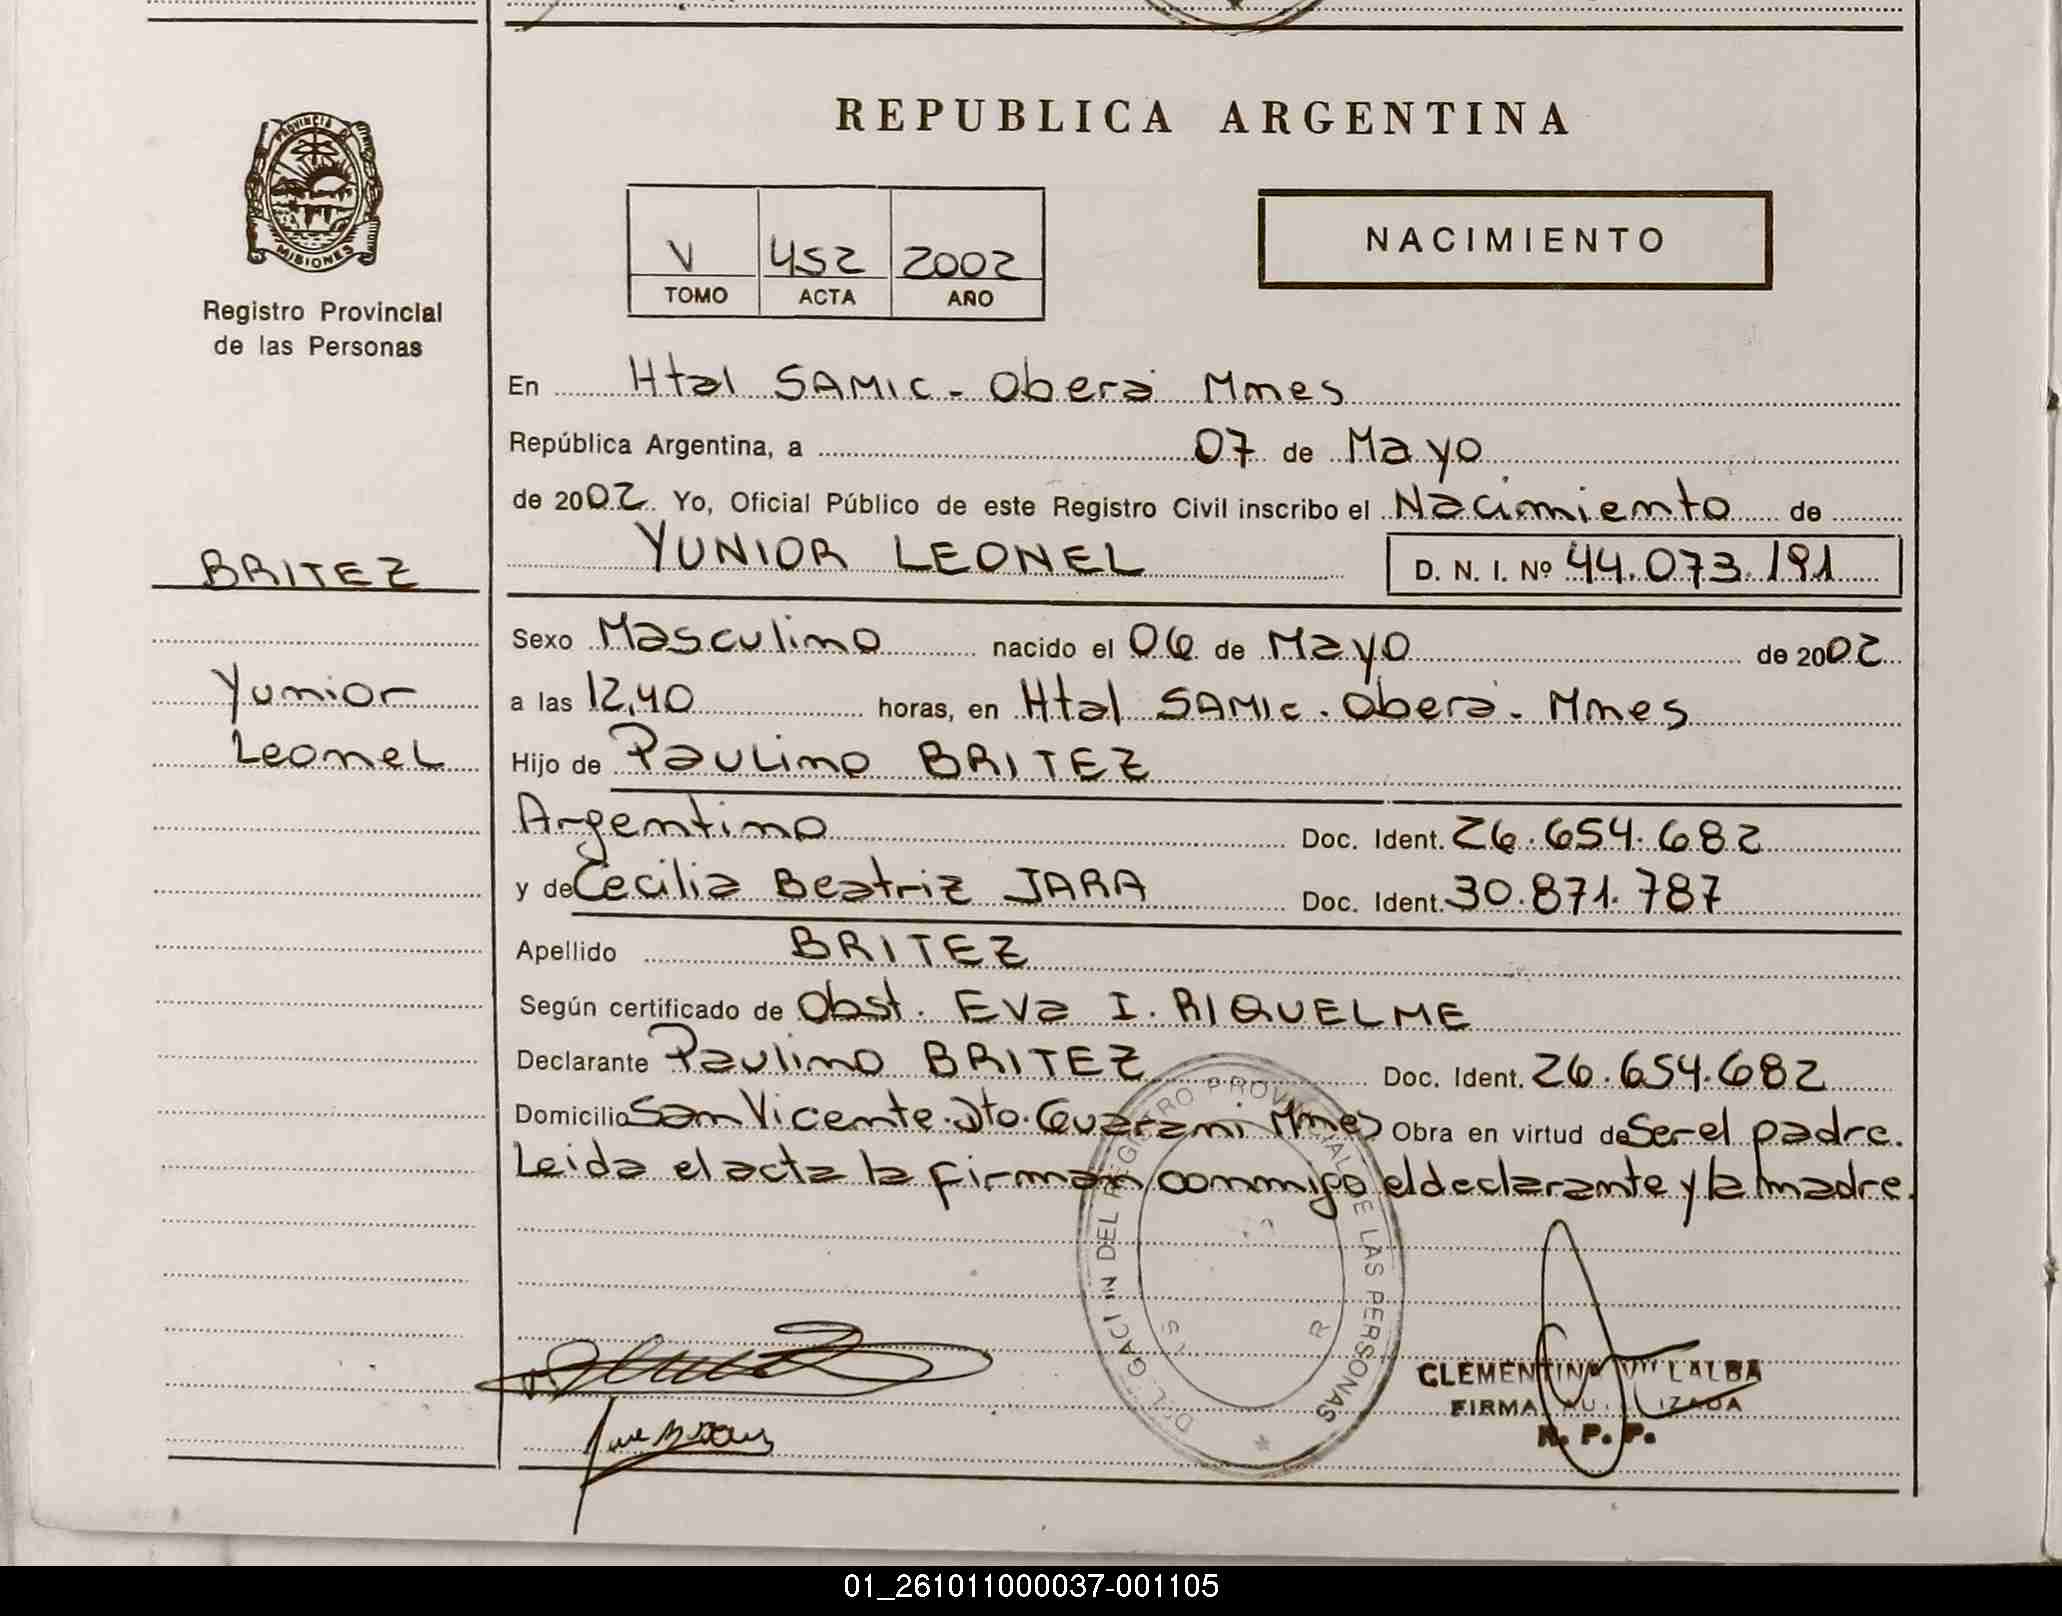 REPUBLICA ARGENTINA
PROVINCIA DE
MISIONES
Registro Provincial
de las Personas
NACIMIENTO
V 452 2002
TOMO ACTA AÑO
En Htal SAMIC - Oberá Mnes
República Argentina, a 07 de Mayo
de 2002 Yo, Oficial Público de este Registro Civil inscribo el Nacimiento de
YUNIOR LEONEL D. N. I. Nº 44.073.191
BRITEZ
Yunior
Leonel
Sexo Masculino nacido el 06 de Mayo de 2002
a las 12,40 horas, en Htal SAMIC - Oberá - Mnes
Hijo de Paulino BRITEZ
Argentino Doc. Ident. 26.654.682
y de Cecilia Beatriz JARA Doc. Ident. 30.871.787
Apellido BRITEZ
Según certificado de Obst. Eva I. RIQUELME
Declarante Paulino BRITEZ Doc. Ident. 26.654.682
Domicilio San Vicente - Dto. Guarani Mnes Obra en virtud de Ser el padre.
Leida el acta la firman conmigo el declarante y la madre.
DEL REGISTRO PROVINCIAL DE LAS PERSONAS
CLEMENTINA VILLALBA
FIRMA AUTORIZADA
R. P. P.
01_261011000037-001105